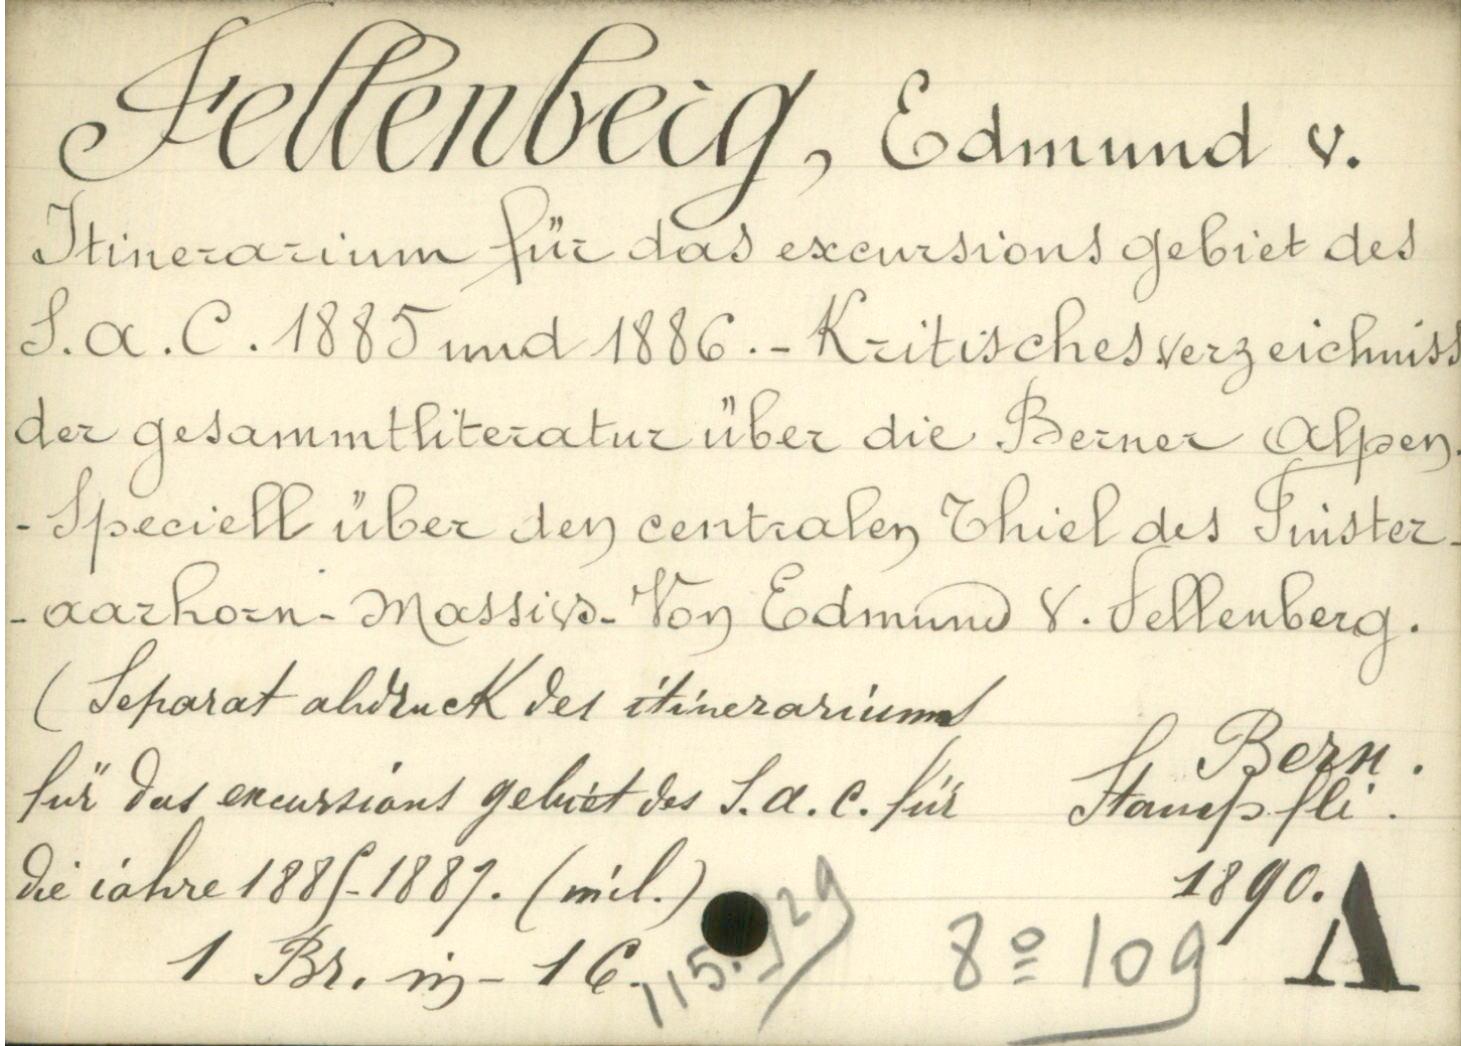 Fellenberg, Edmund v.
Itinerarium für das excursions gebiet des
S.a.C. 1885 und 1886. - Kritisches verzeichniss
der gesammtliteratur über die Berner Alpen.
- Speciell über den centralen Thiel des Finster-
- aarhorn - Massivs - Von Edmund v. Fellenberg.
(Separat abdruck des itinerariums
für das excursions gebiet des S.a.c. für
die iahre 1885-1887. (mil.)
Bern.
Stampfli.
1890.
1 Br. in - 16.
115.929
8º 109
A